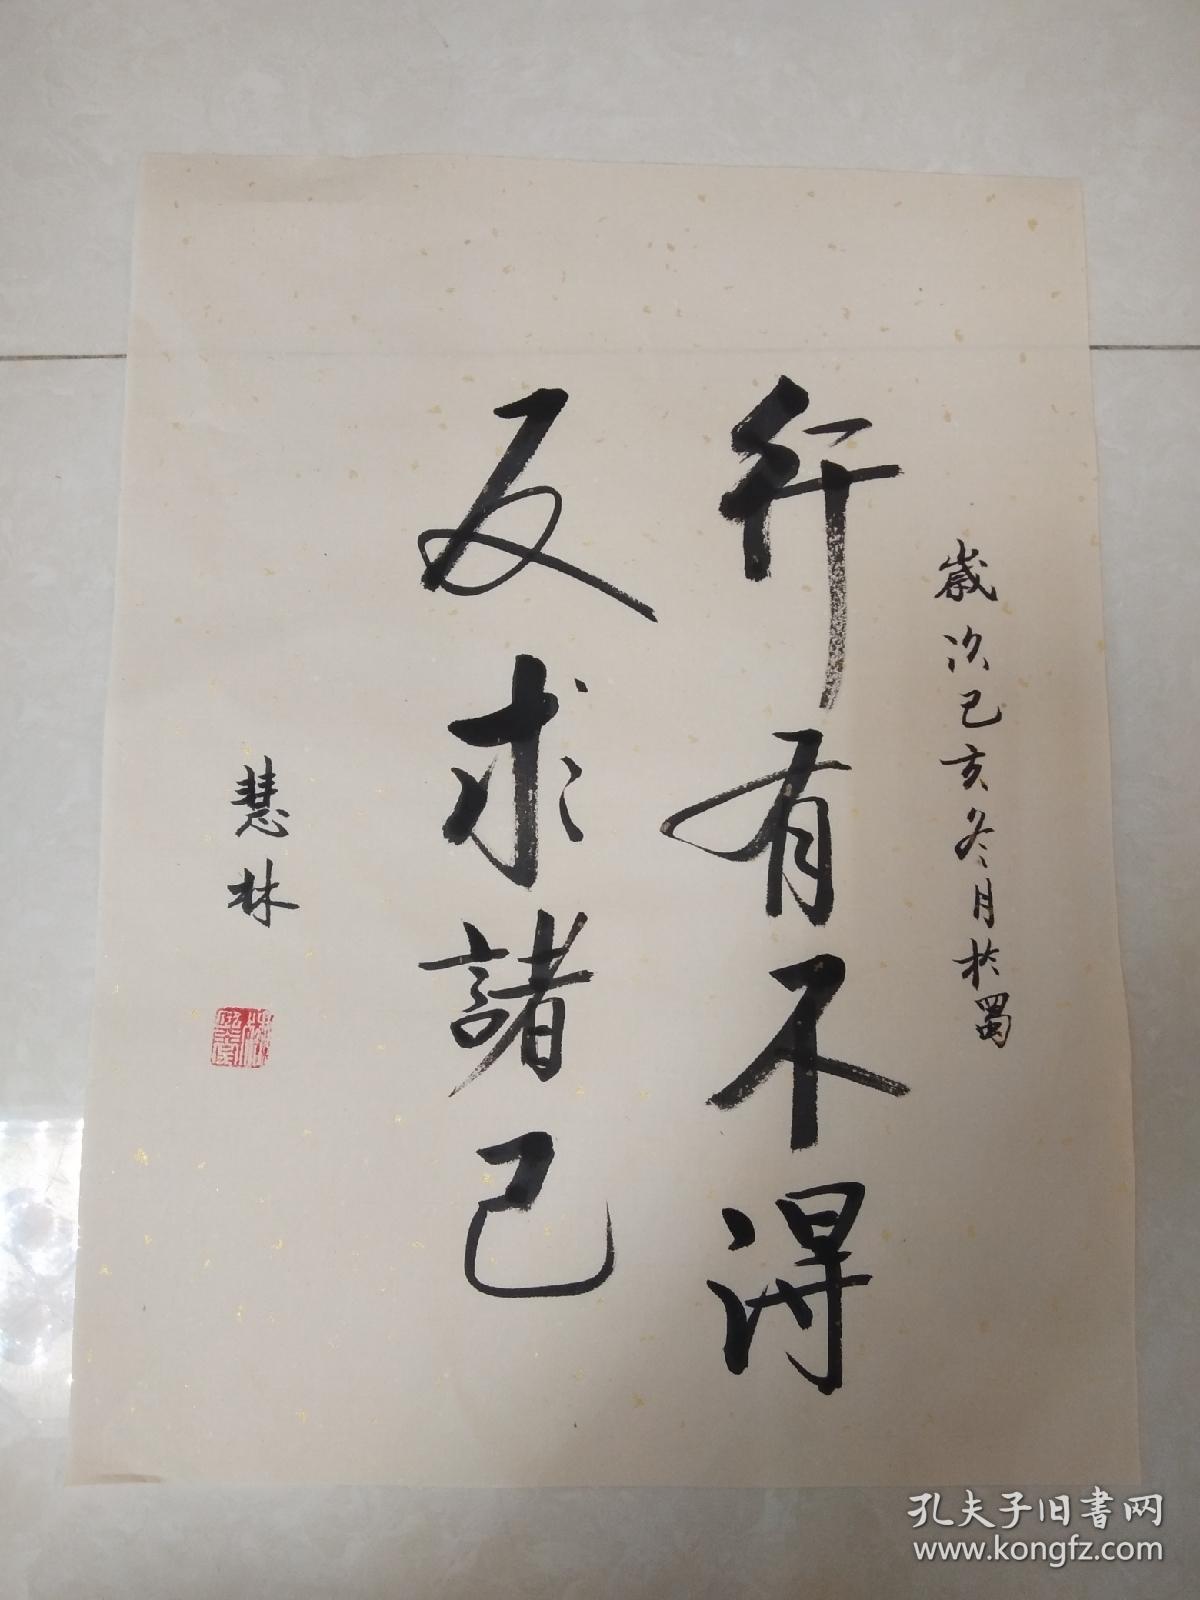 歳次己亥冬月於蜀
行有不得
反求諸己
慧林
孔夫子旧书网
www.kongfz.com